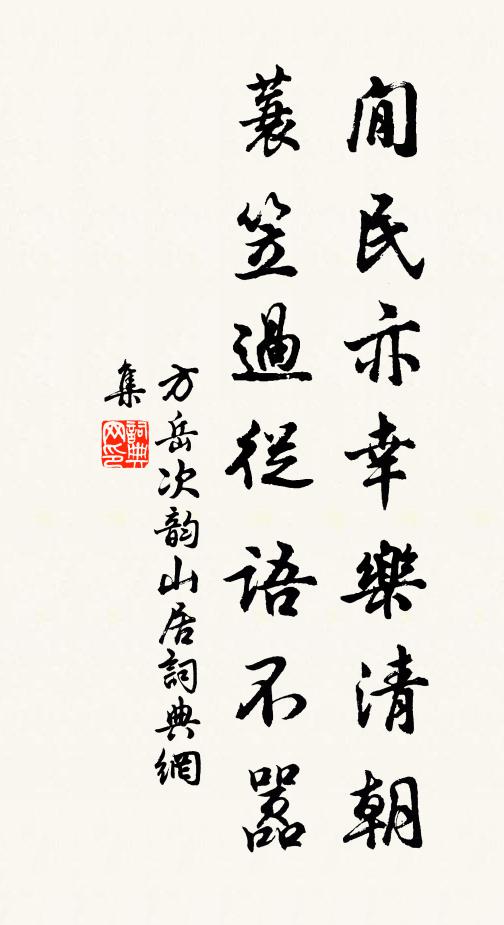 閒民亦幸樂清朝
蓑笠過從語不囂
方岳次韵山居詞典網
集
詞典網印